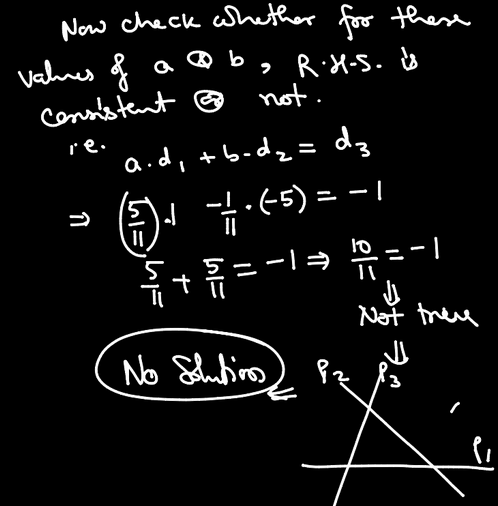 Now check whether for these
values of a & b, R.H.S. is
consistent or not.
i.e.
a.d₁ + b.d₂ = d₃
⇒ (5/11).1 -1/11.(-5) = -1
5/11 + 5/11 = -1 ⇒ 10/11 = -1
⇓
Not true
⇓
No Solution ⇐
P₂ P₃
P₁